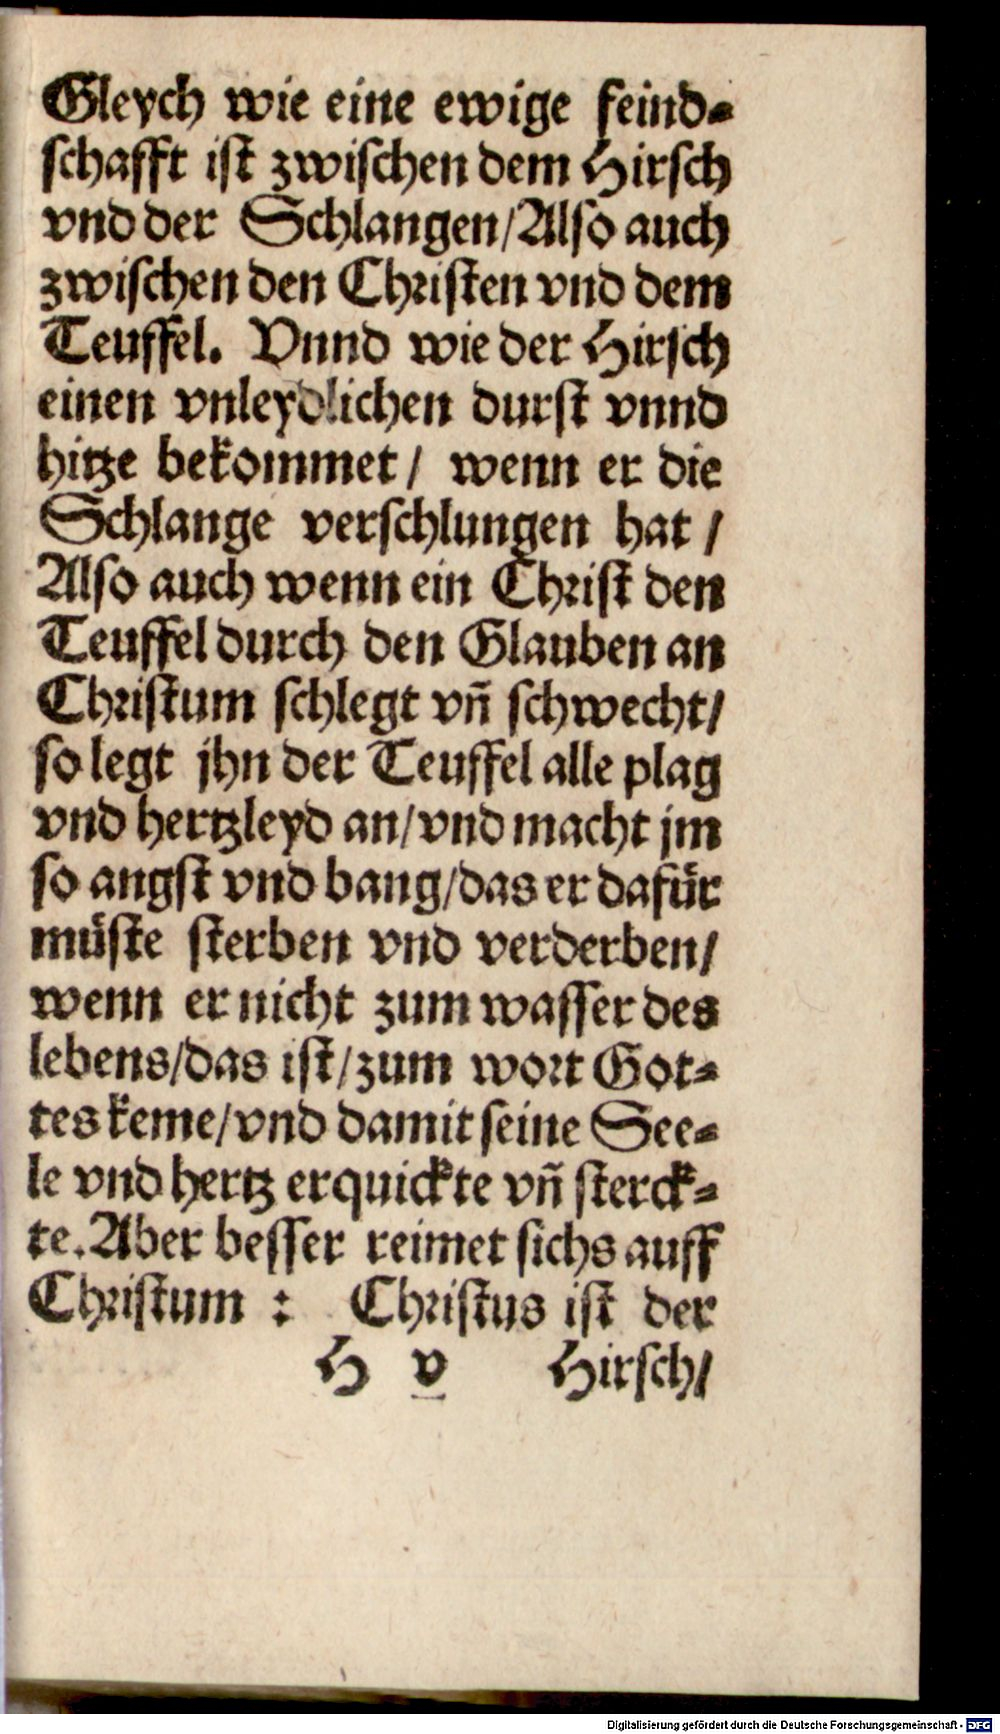 Gleych wie eine ewige feind⸗
schafft ist zwischen dem Hirsch
vnd der Schlangen/Also auch
zwischen den Christen vnd dem
Teuffel. Vnnd wie der Hirsch
einen vnleydlichen durst vnnd
hitze bekommet/ wenn er die
Schlange verschlungen hat/
Also auch wenn ein Christ den
Teuffel durch den Glauben an
Christum schlegt vñ schwecht/
so legt jhn der Teuffel alle plag
vnd hertzleyd an/vnd macht jm
so angst vnd bang/das er dafür
müste sterben vnd verderben/
wenn er nicht zum wasser des
lebens/das ist/zum wort Got⸗
tes keme/vnd damit seine See⸗
le vnd hertz erquickte vñ sterck⸗
te. Aber besser reimet sichs auff
Christum : Christus ist der
H v Hirsch/
Digitalisierung gefördert durch die Deutsche Forschungsgemeinschaft - DFG